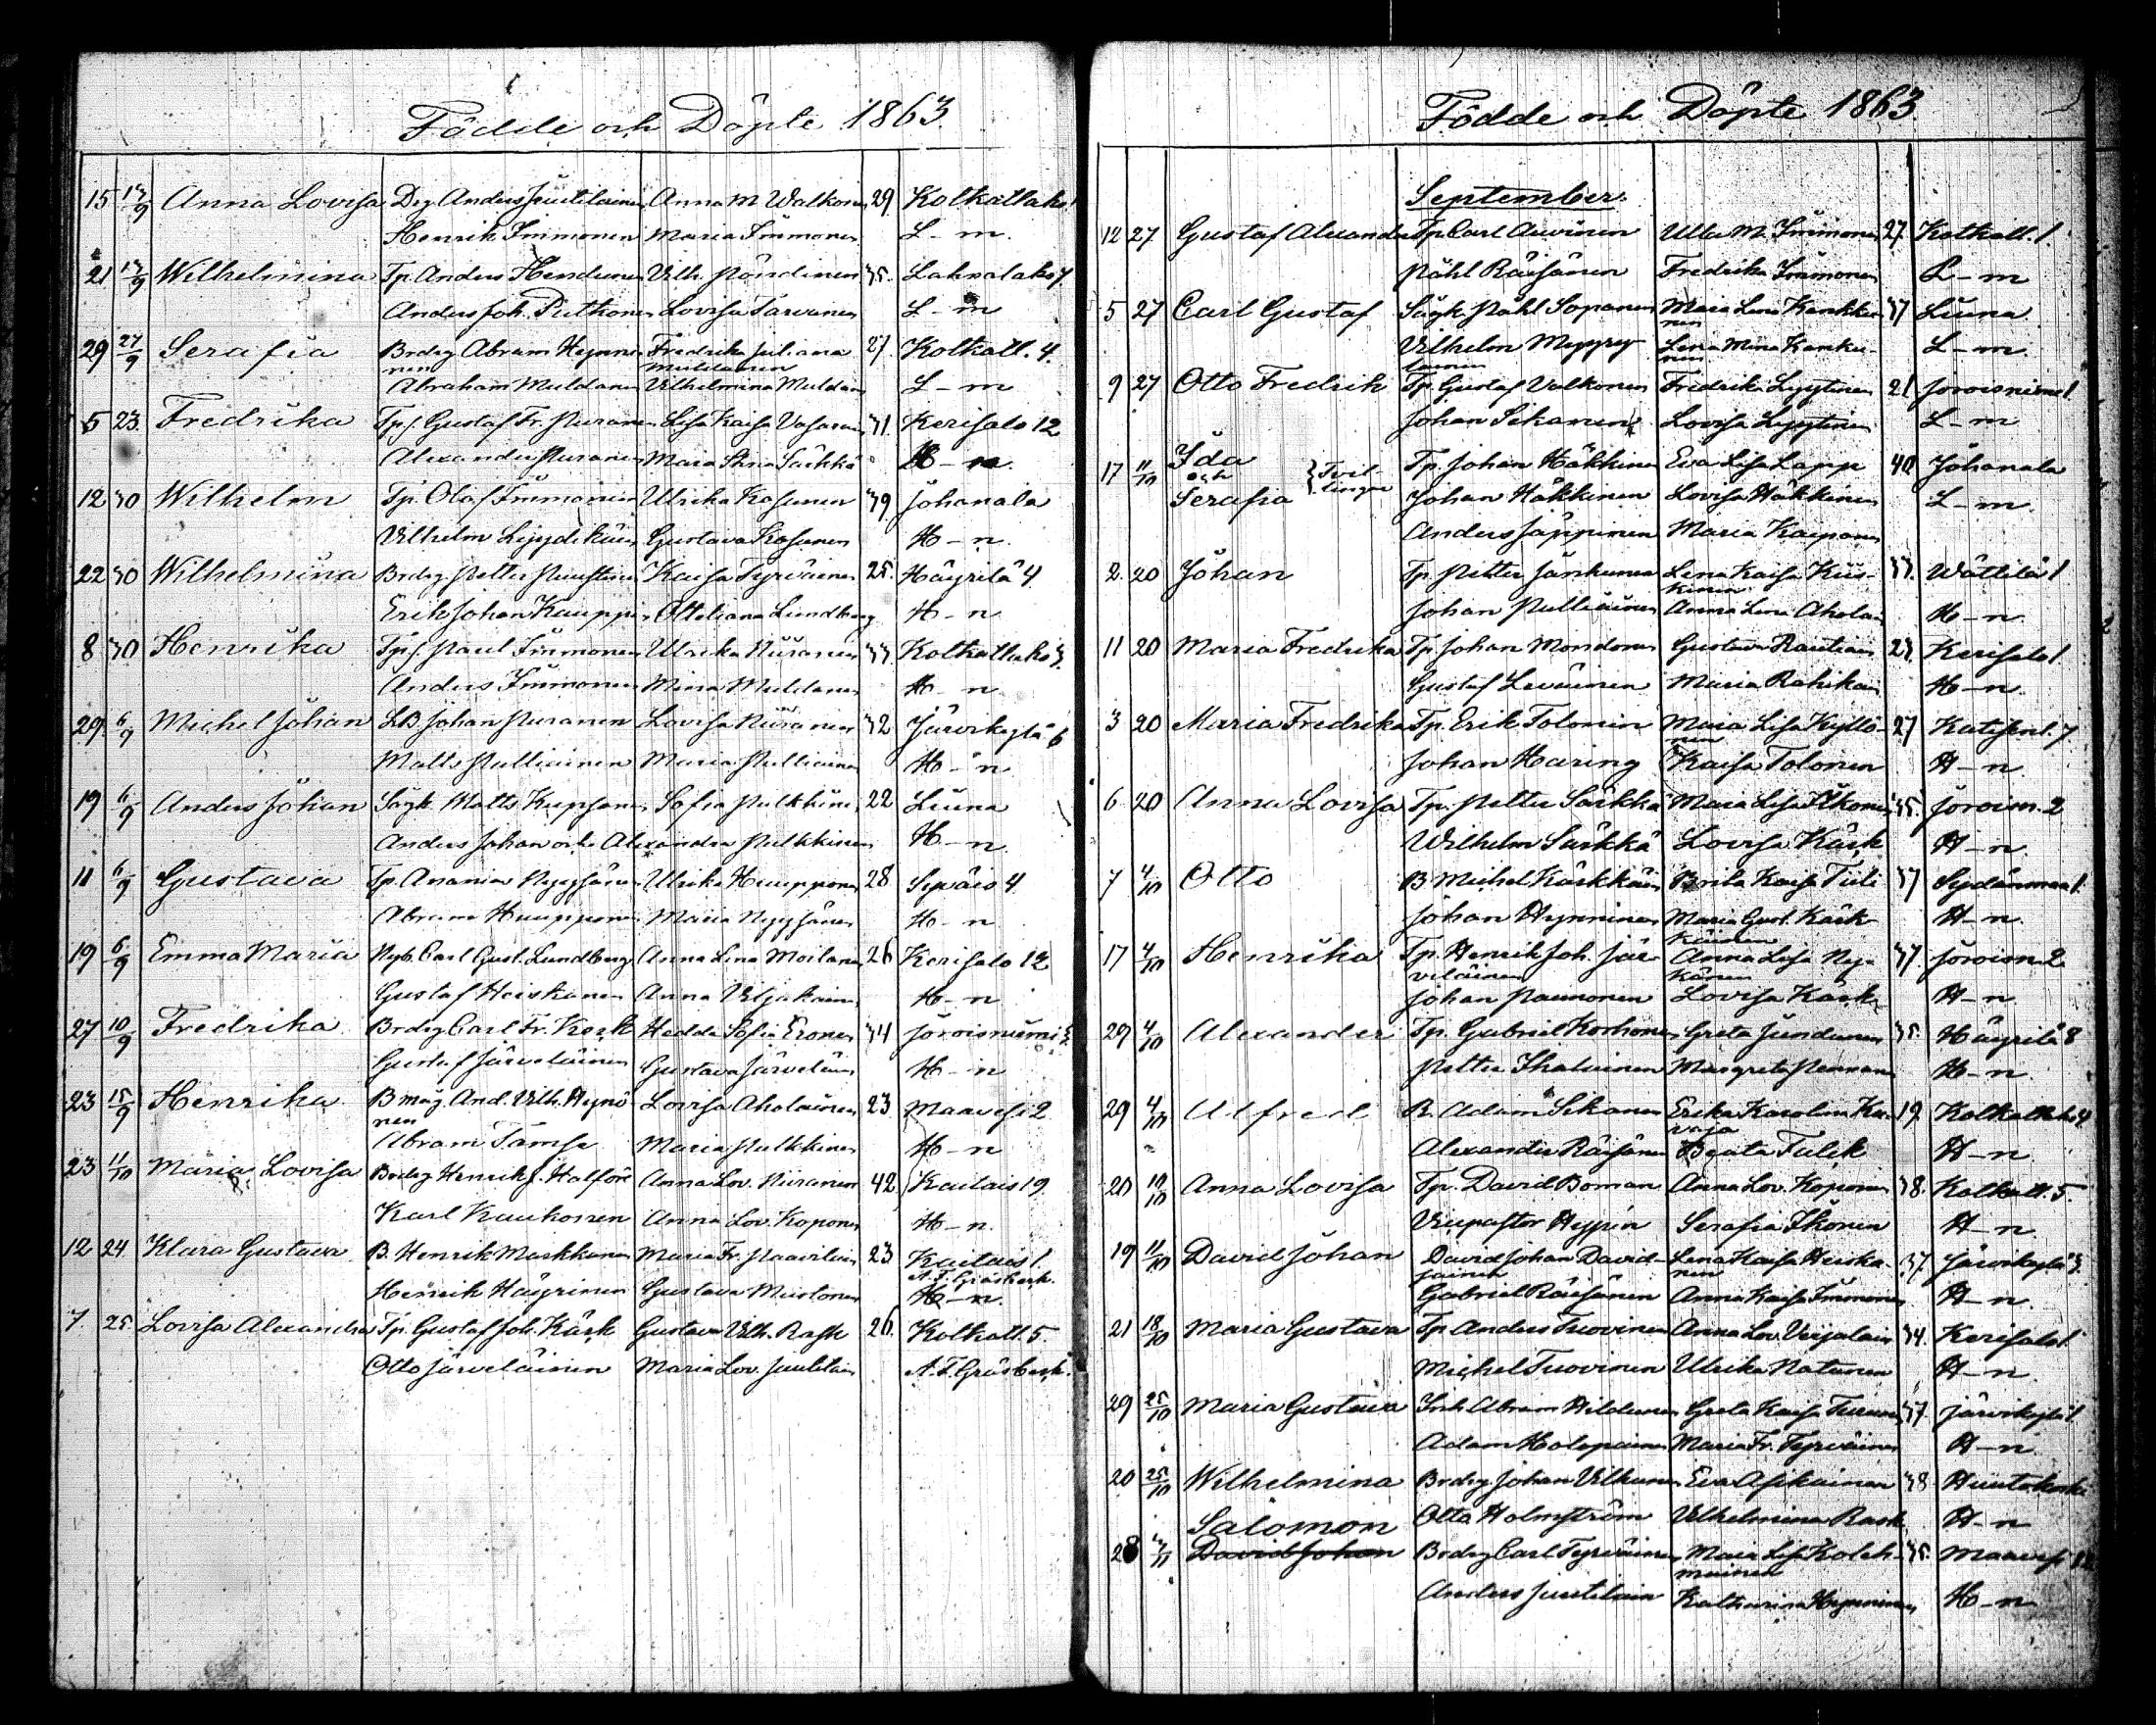 Födde och Döpte 1863.
15 13/9 Anna Lovisa Drg Anders Juutilainen Anna M Walkonen 29. Kolkatlaks 1
Henrik Immonen Maria Immonen L-m.
21 13/9 Wilhelmina Tp. Anders Vilh. 35. Lahnalaks 7
Anders Joh. Putkonen Lovisa Tarvanen L-m
29 27/9 Serafia Brdrg Abram Hynni- Fredrika Juliana 27. Kolkatl. 4.
nen Muldanen
Abraham Muldanen Vilhelmina Muldanen L-m
5 23. Fredrika Tp.s. Gustaf Fr. Nuranen Lisa Kaisa 31. Kerisalo 12
Alexander Nuranen Maria Särkkä H-n.
12 30 Wilhelm Tp. Olof Immonen Ulrika Kosunen 39 Johanala
Vilhelm Lyydikäin Gustava Kosunen H-n.
22 30 Wilhelmina Brdrg. Petter Kaisa Tyrväinen 25. Häyrilä 4
Erik Johan Kauppin Ottiliana Lundberg H-n
8 30 Henrika Tp.s. Paul Immonen Ulrika Niiranen 33. Kolkatlaks 3.
Anders Immonen Mina Muldanen H-n
29. 6/9 Michel Johan LB. Johan Nuranen Lovisa Niiranen 32 Järvikylä 6
Matts Pulliainen Maria Pulliainen H-n
19 6/9 Anders Johan Sågk. Matts Sofia Pulkkinen 22 Liuna
Anders Johan och Alexandra Pulkkinen H-n.
11 6/9 Gustava Tp. Anania Nyyssönen Ulrika Huupponen 28 Sepäis 4.
Abram Huupponen Maria Nyyssönen H-n
19 6/9 Emma Maria Nyb. Carl Gust. Lundberg Anna Lena Moilanen 26 Kerisalo 12
Gustaf Heiskanen Anna Viljakainen H-n
27 10/9 Fredrika Brdrg Carl Fr. Kärk Hedda Sofia Eronen 34 Joroisniemi 3.
Gustaf Järveläinen Gustava Järveläin H-n
23 15/9 Henrika Bmåg. And. Vilh. Hynni- Lovisa Aholainen 23 Maavesi 2
nen
Abram Tamsa Maria Pulkkinen H-n
23 11/10 Maria Lovisa Brdrg Henrik J. Halfors Anna Lov. Niiranen 42 Kaitais 19
Karl Kaukonen Anna Lov. Koponen H-n.
12 24 Klara Gustava B. Henrik Maskkanen Maria Fr. Paavilain 23 Kaitais 1.
A.F. Gräsbeck.
Henrik Häyrinen Gustava Mustonen H-n.
7. 25. Lovisa Alexandra Tp. Gustaf Joh. Kärk Gustava Vilh. Rask 26. Kolkatl. 5.
Otto Järveläinen Maria Lov. Juutilain A.F. Gräsbeck.
Födde och Döpte 1863
September.
12 27 Gustaf Alexander Tp. Carl Auvinen Ulla M. Immonen 27. Kolkatl. 1.
Påhl Räisänen Fredrika Immonen L-m
5 27 Carl Gustaf Sågk. Påhl Sopanen Maria Lena Kankku- 37 Liuna
nen
Vilhelm Myyry Lena Mina Kanku- L-m.
nen
9 27 Otto Fredrik Tp. Gustaf Valkonen Fredrika Lyytinen 21 Joroisniemi 1.
Johan Sikanen Lovisa Lyytinen L-m
17 11/10 Ida Tvil- Tp. Johan Häkkinen Eva Lisa Lapp 40 Johanala
och lingar
Serafia Johan Häkkinen Lovisa Häkkinen L-m.
Anders Jäppinen Maria Kaiponen
2. 20 Johan Tp. Petter Jänkunen Lena Kaisa Kiis- 33. Wättilä 1
kinen
Johan Pulliainen Anna Lena Aholain H-n
11 20 Maria Fredrika Tp. Johan Mondonen Gustava Rautiain 23. Kerisalo 1
Gustaf Leväinen Maria Rahikain H-n.
3 20 Maria Fredrika Tp. Erik Tolonen Maria Lisa Kyllö- 27 Katisenl. 7.
nen
Johan Haring Kaisa Tolonen H-n
6 20 Anna Lovisa Tp. Petter Särkkä Maria Lisa Ikonen 35. Joroisn. 2
Wilhelm Särkkä Lovisa Kärk H-n.
7 4/10 Otto B. Michel Kärkkäin Brita Kaisa Tuli 37 Sydänmaa 1.
Johan Hynninen Maria Gust. Kärk- H-n.
käinen
17 4/10 Henrika Tp. Henrik Joh. Jär- Anna Lisa 37. Joroisn. 2
veläinen
Johan Paunonen Lovisa Kärk H-n.
29 4/10 Alexander Tp. Gabriel Korhonen Greta Jundunen 35. Häyrilä 8
Petter Ihalainen Margreta Pennanen H-n.
29 4/10 Alfred R. Adam Sikanen Erika Karolina Ku- 19. Kolkatlaks 4
vaja
Alexander Räisänen Beata Tulck H-n
20 12/10 Anna Lovisa Tp. David Boman Anna Lov. Koponen 38. Kolkatl. 5.
Vicepastor Hyppén Serafia Ikonen H-n
19 11/10 David Johan David Johan David- Lena Kaisa Heiska- 37. Järvikylä 3.
sainen nen
Gabriel Räisänen Anna Kaisa Immonen H-n.
21 18/10 Maria Gustava Tp Anders Tuovinen Anna Lov. Vesalain 34. Kerisalo 1.
Michel Tuovinen Ulrika Natunen H-n.
29 25/10 Maria Gustava Inh. Abram Hildunen Greta Kaisa Turunen 37. Järvikylä 1.
Adam Holopainen Maria Fr. Tyrväinen H-n.
20 25/10 Wilhelmina Brdrg. Johan Vilhunen Eva Asikainen 38 Huutokoski
Otto Holmström Vilhelmina Rask H-n
Salomon
28 David Johan Brdrg Carl Tyrväinen Maria Lisa Koleh- 35. Maavesi
mainen
Anders Juutilain Katharina Hynninen H-n